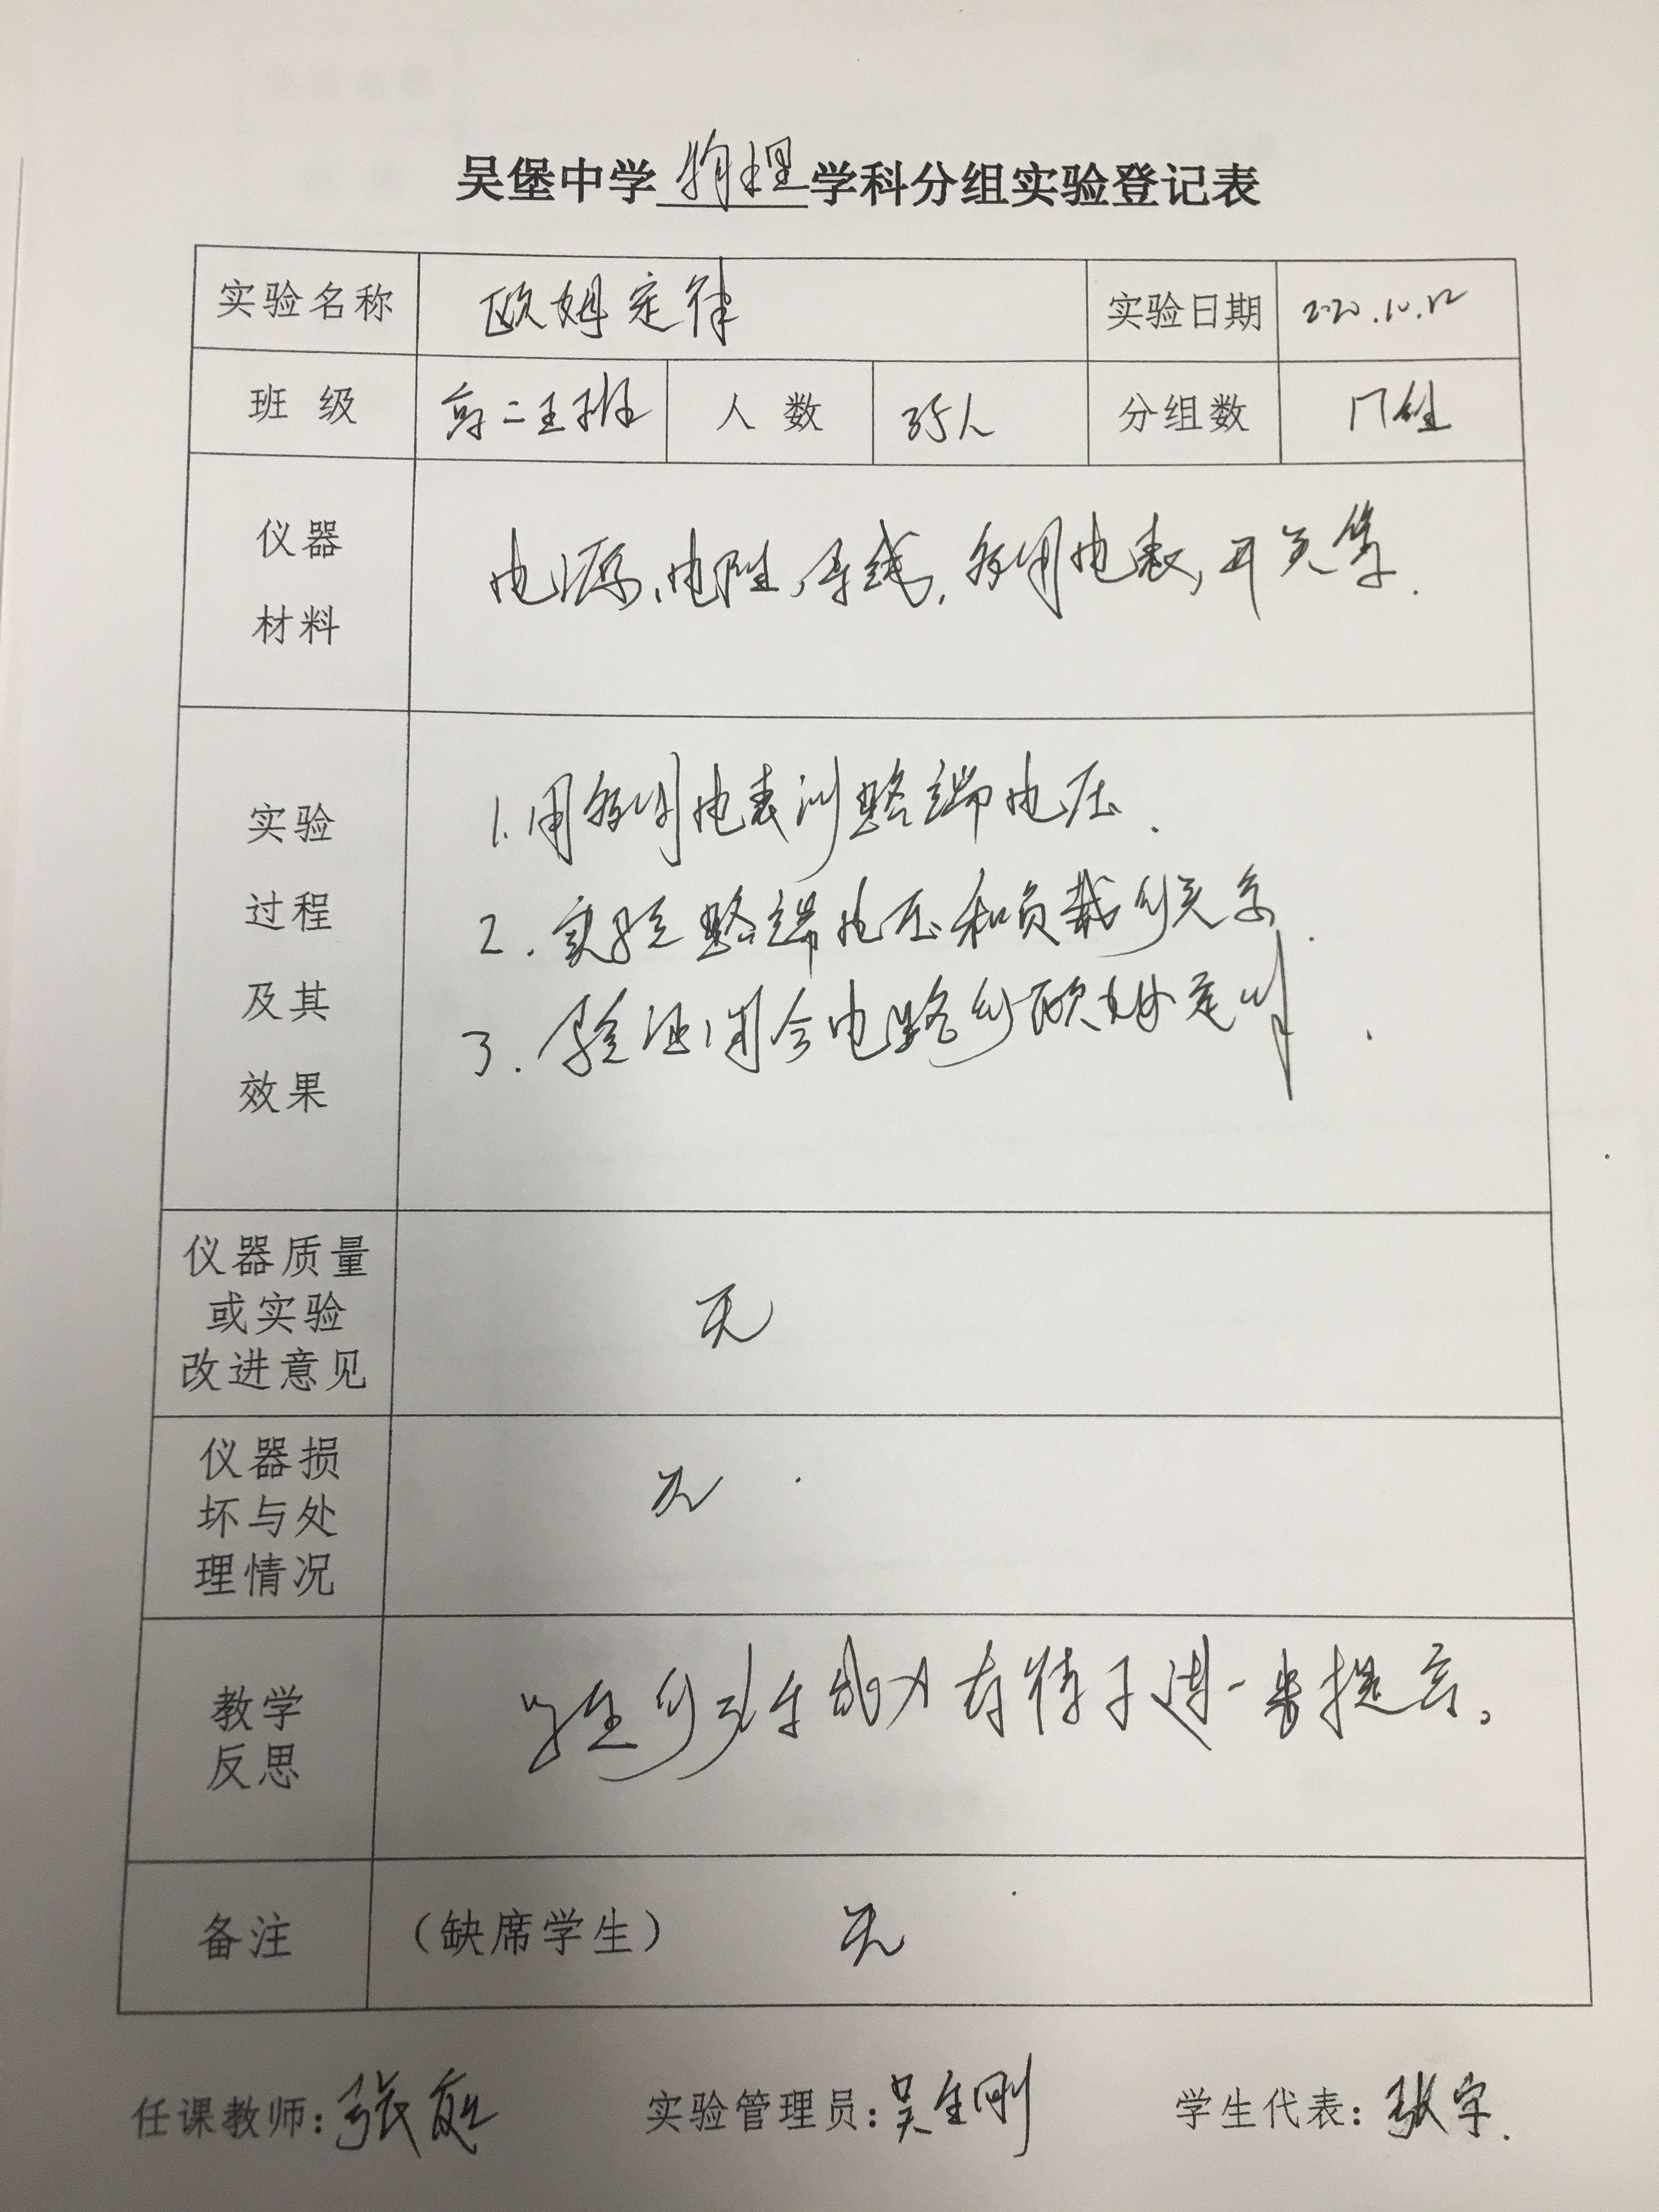 吴堡中学物理学科分组实验登记表
实验名称 欧姆定律 实验日期 2020.10.12
班级 高二五班 人数 35人 分组数 17组
仪器
材料
电源、电阻、导线、多用电表、开关等.
实验
过程
及其
效果
1.用多用电表测路端电压.
2.实验路端电压和负载的关系.
3.验证闭合电路的欧姆定律.
仪器质量
或实验
改进意见
无
仪器损
坏与处
理情况
无.
教学
反思
学生的动手能力有待于进一步提高。
备注 （缺席学生） 无
任课教师：张 实验管理员：吴生刚 学生代表：张宇.